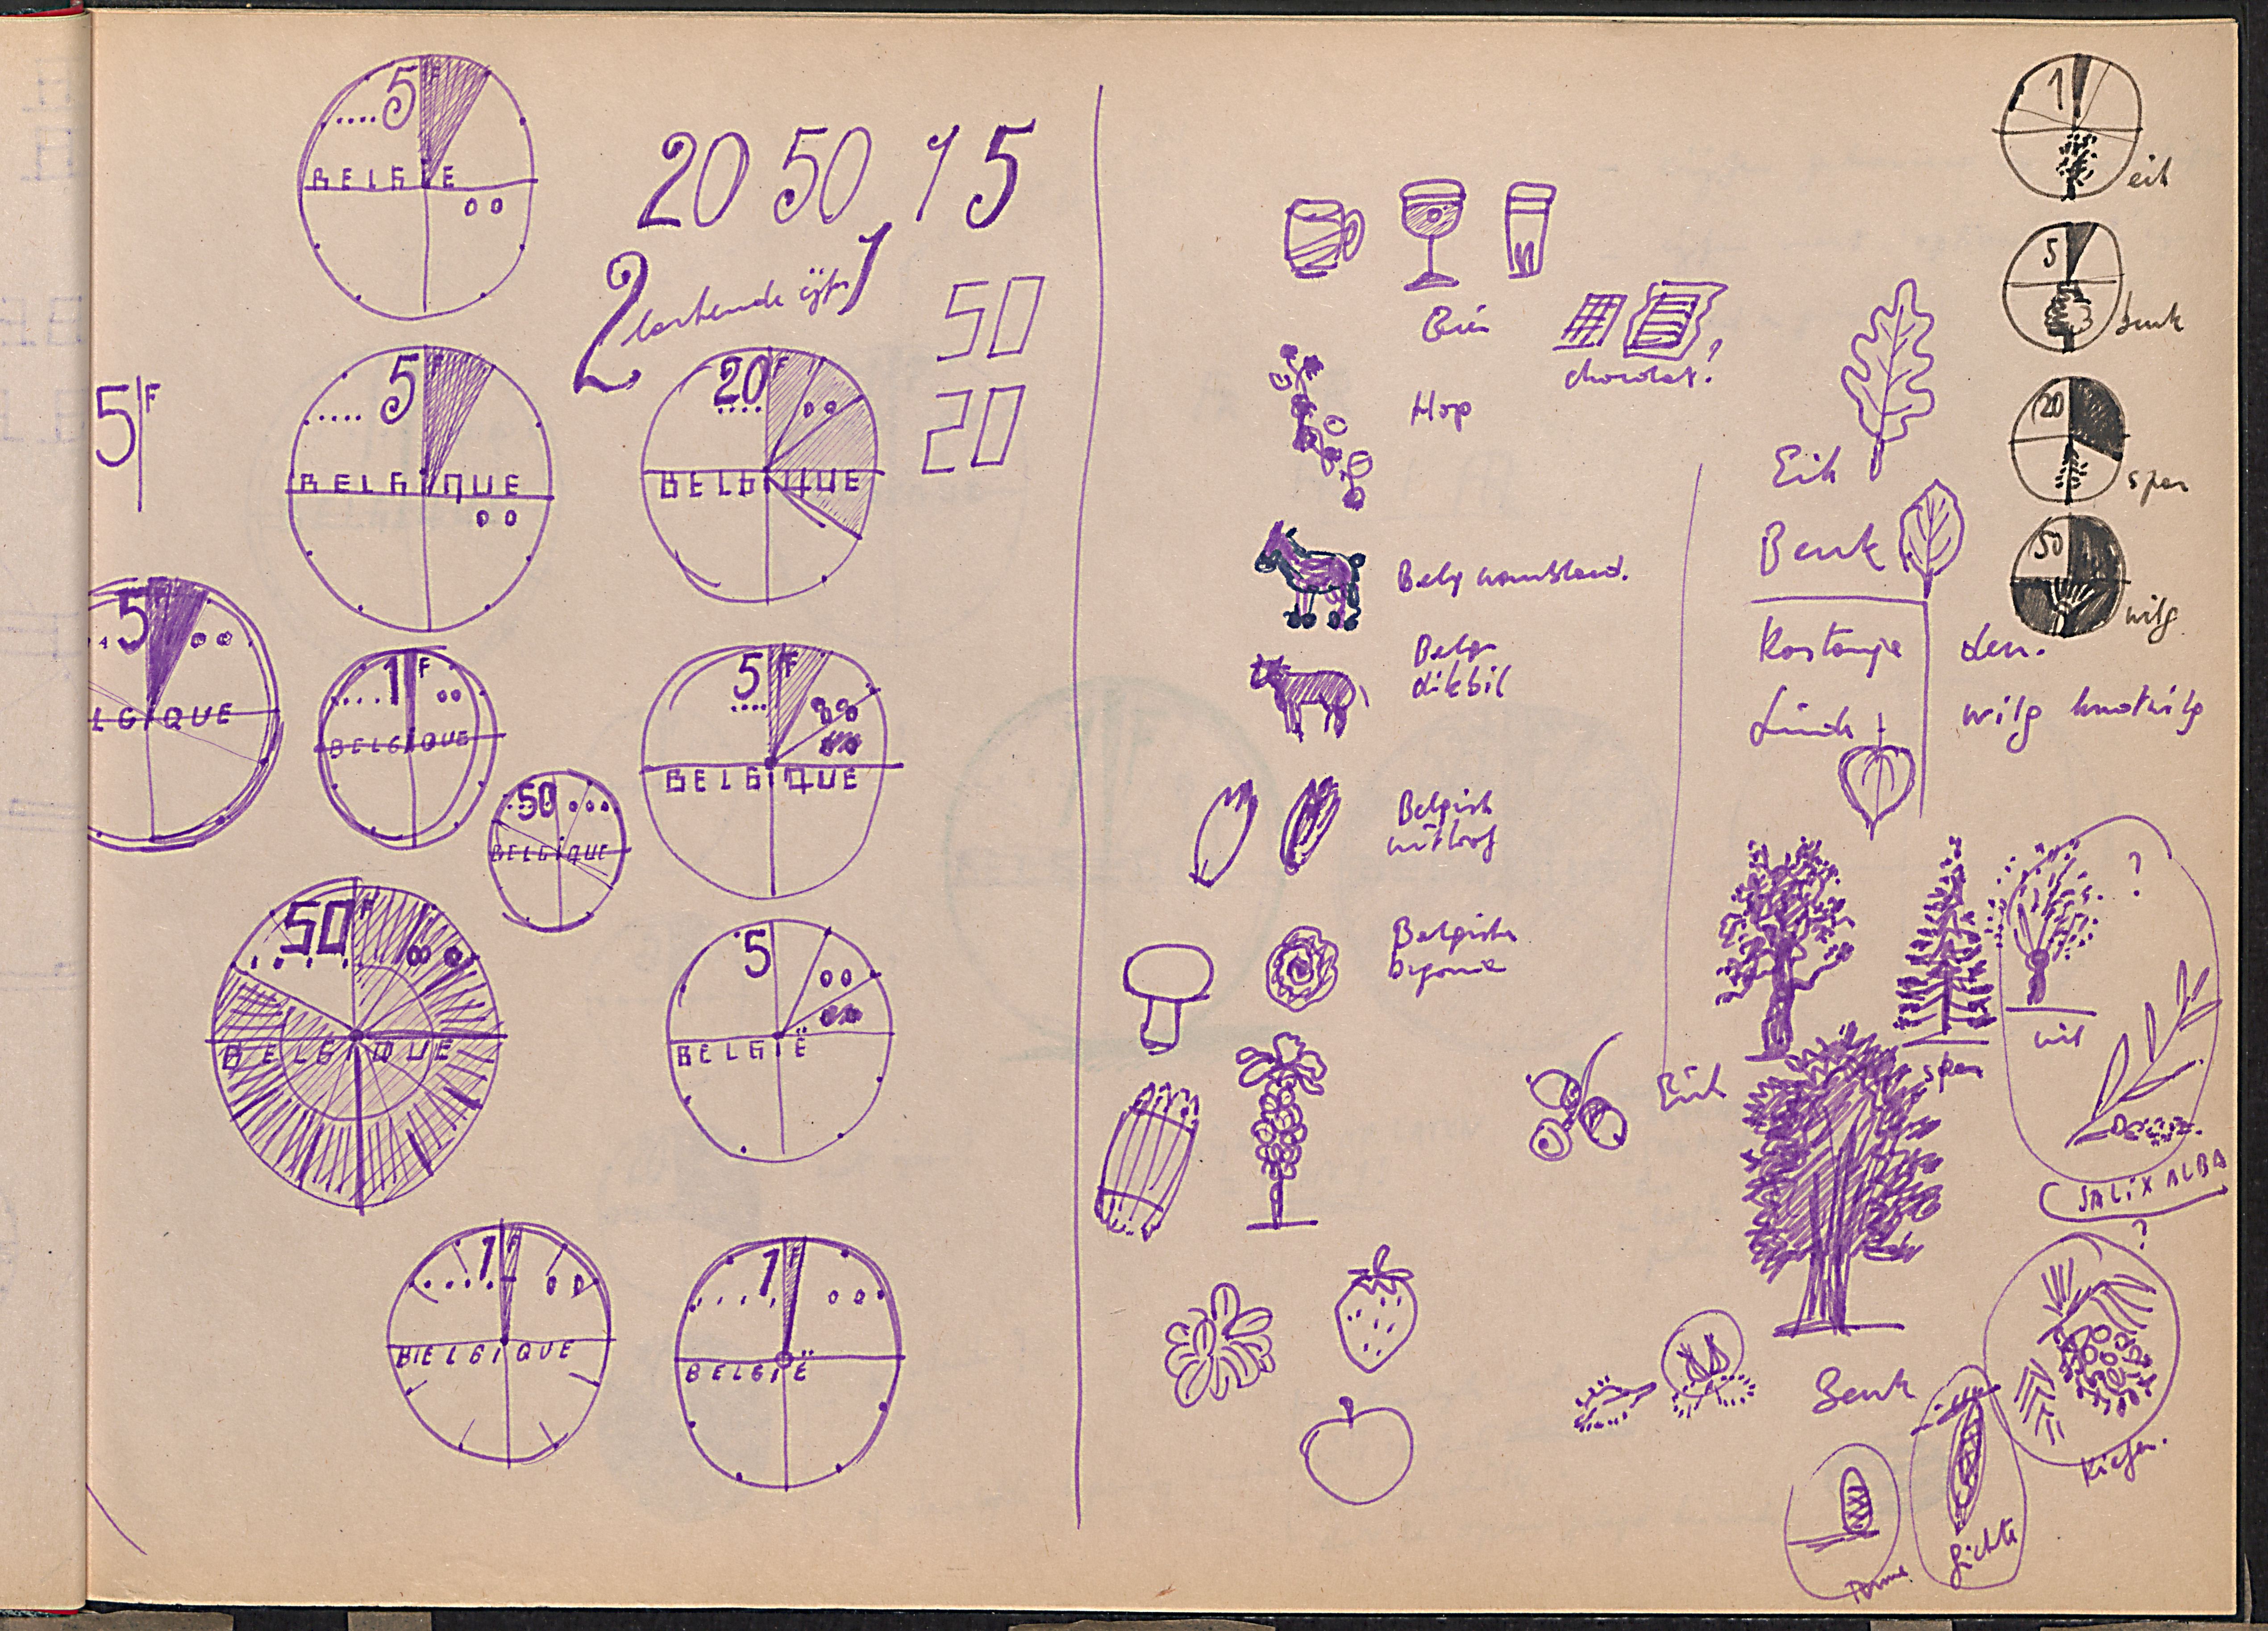 5 F
BELGIË
5 F
BELGIQUE
5 F
20 50 1 5
2
1
50
20
20 F
BELGIQUE
5 F
LGIQUE
1 F
BELGIQUE
50
BELGIQUE
5 F
BELGIQUE
50 F
BELGIQUE
5
BELGIË
1 F
BELGIQUE
1 F
BELGIË
Bier
chocolat?
Hop
Belg
Belg
dikbil
Belgisch
witloof
Belgische
begonia
Eik
Beuk
Kastanje
den.
Linde
wilg knotwilg
Eik
spar
?
wil
SALIX ALBA
?
Beuk
Kiefer.
fichte
1
eik
5
beuk
20
spar
50
wilg